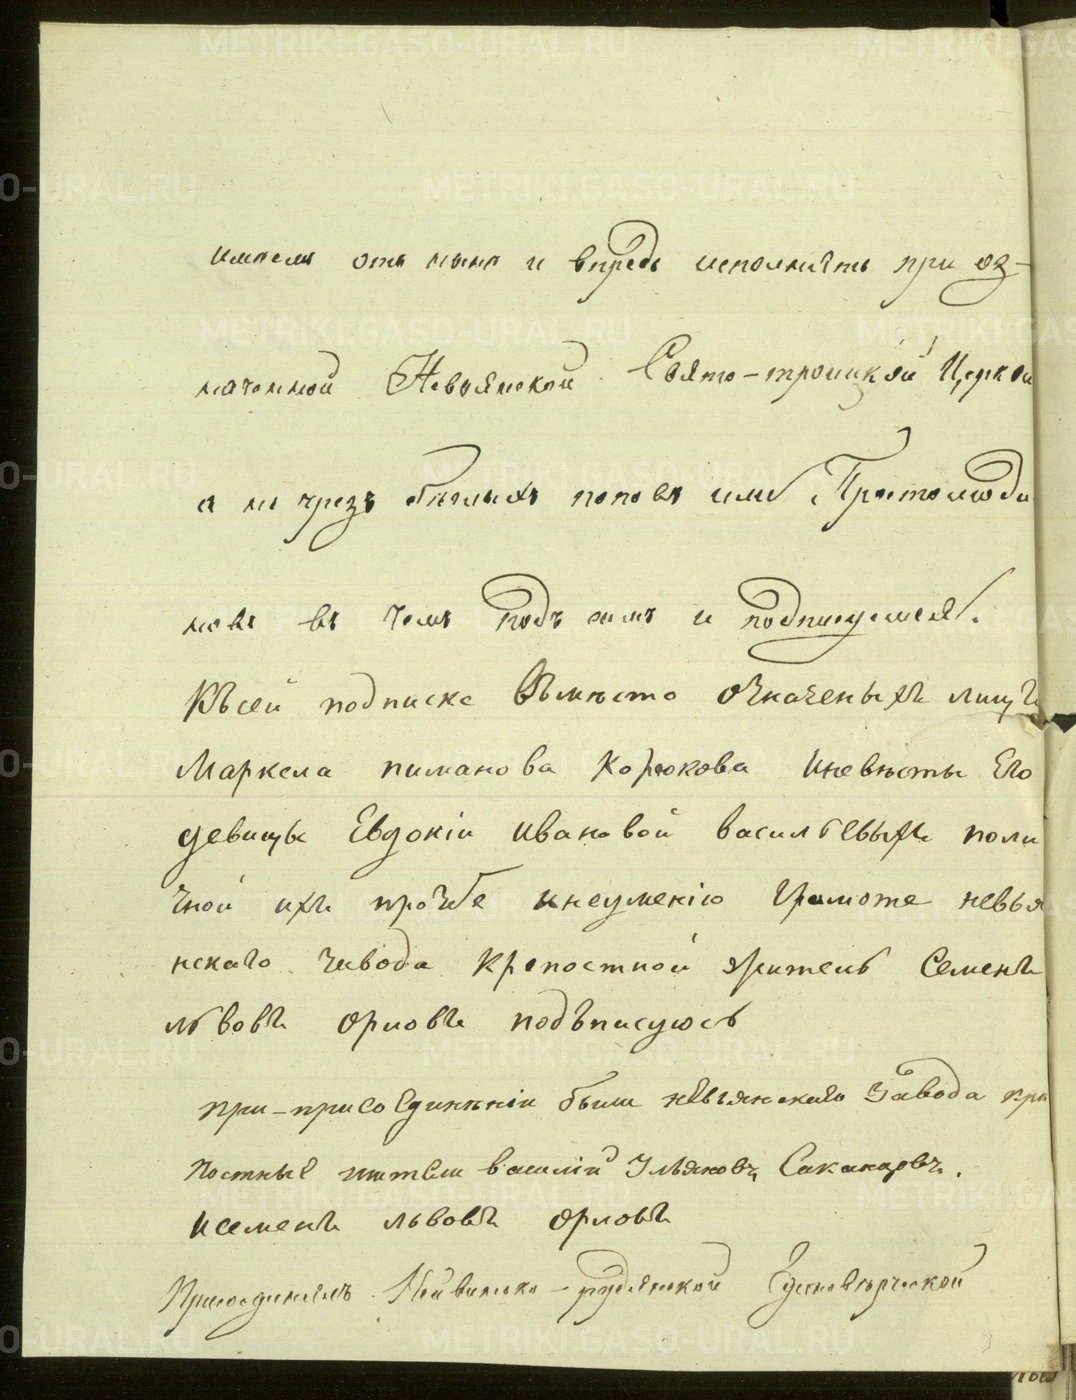 имеемъ отъ ныне и впредь исполнять при оз-
наченной Невьянской Свято-троицкой Церкви
а не чрезъ беглыхъ поповъ или Простолюди
новъ въ чемъ подъ симъ и подписуемся.
Късей подписке Вѣместо означеныхъ лицъ
Маркела пиманова Корюкова Иневѣсты Его
девицы Евдокіи Ивановой васильевыхъ поли
чной ихъ прозбе инеумению Грамоте невья
нскаго завода крепостной житель Семенъ
львовъ Орловъ подъписуюсь
при-присоединѣніи были невьянскаго Завода кре
постные жители василий Ульяновъ Сакантовъ.
Исеменъ львовъ Орловъ
Присоединялъ Нейвинско-рудянской Единоверческой
METRIKI.GASO-URAL.RU